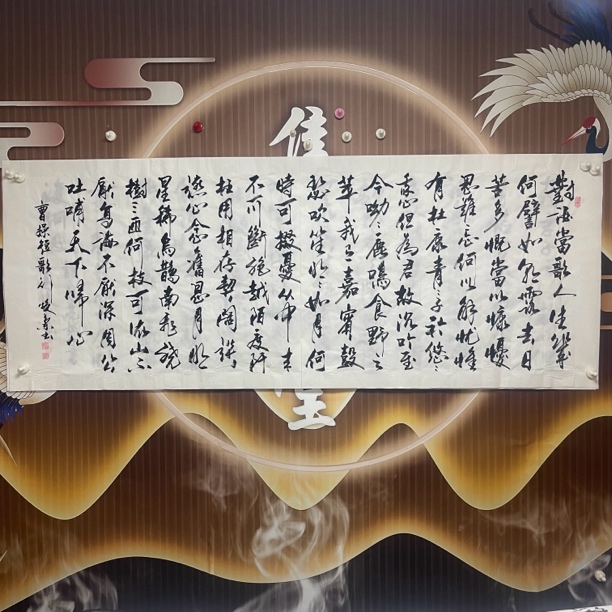 對酒當歌人生幾
何譬如朝露去日
苦多慨當以慷憂
思難忘何以解忧惟
有杜康青青子衿悠々
我心但為君故沉吟至
今呦々鹿鳴食野之
苹我有嘉賓鼓
瑟吹笙明々如月何
時可掇憂从中来
不可斷絕越陌度阡
枉用相存契闊談
讌心念舊恩月明
星稀烏鵲南飛繞
樹三匝何枝可依山不
厭高海不厭深周公
吐哺天下歸心
曹操短歌行
佳